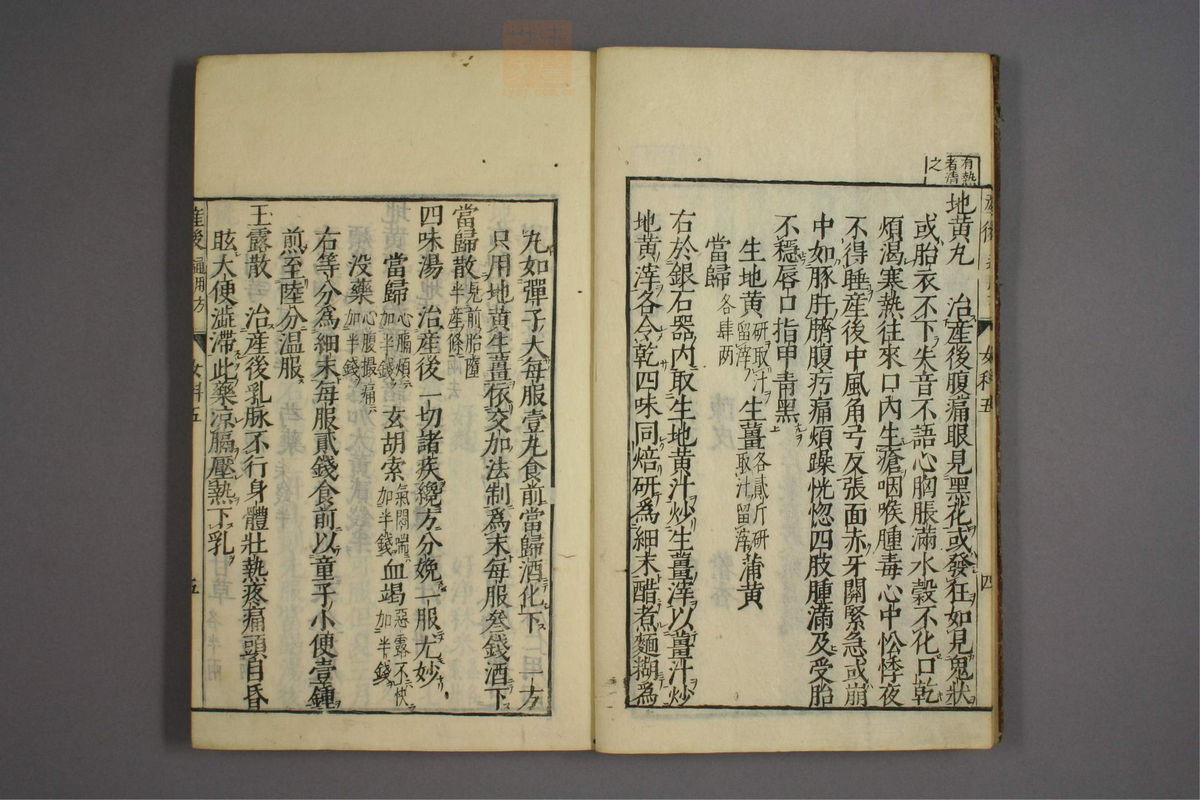 有熱
者清
之
地黃丸　治產後腹痛眼見黑花或發狂如見鬼狀
或胎衣不下失音不語心胸脹滿水穀不化口乾
煩渴寒熱往來口內生瘡咽喉腫毒心中忪悸夜
不得睡產後中風角弓反張面赤牙關緊急或崩
中如豚肝臍腹㽲痛煩躁恍惚四肢腫滿及受胎
不穩唇口指甲青黑
生地黃研取汁留滓生薑各貳斤研取汁留滓蒲黃
當歸各肆兩
右於銀石器內取生地黃汁炒生薑滓以薑汁炒
地黃滓各令乾四味同焙研爲細末醋煮麵糊爲
女科五
四
丸如彈子大每服壹丸食前當歸酒化下一方
只用地黃生薑依交加法制爲末每服叁錢酒下
當歸散見前胎墮半產條
四味湯　治產後一切諸疾纔方分娩一服尤妙
當歸心膈煩加半錢玄胡索氣悶喘加半錢血竭惡露不快加半錢
没藥心腹撮痛加半錢
右等分爲細末每服貳錢食前以童子小便壹鍾
煎至陸分溫服
玉露散　治產後乳脉不行身體壯熱疼痛頭目昏
眩大便澁滯此藥凉膈壓熱下乳
產後通用方
女科五
五